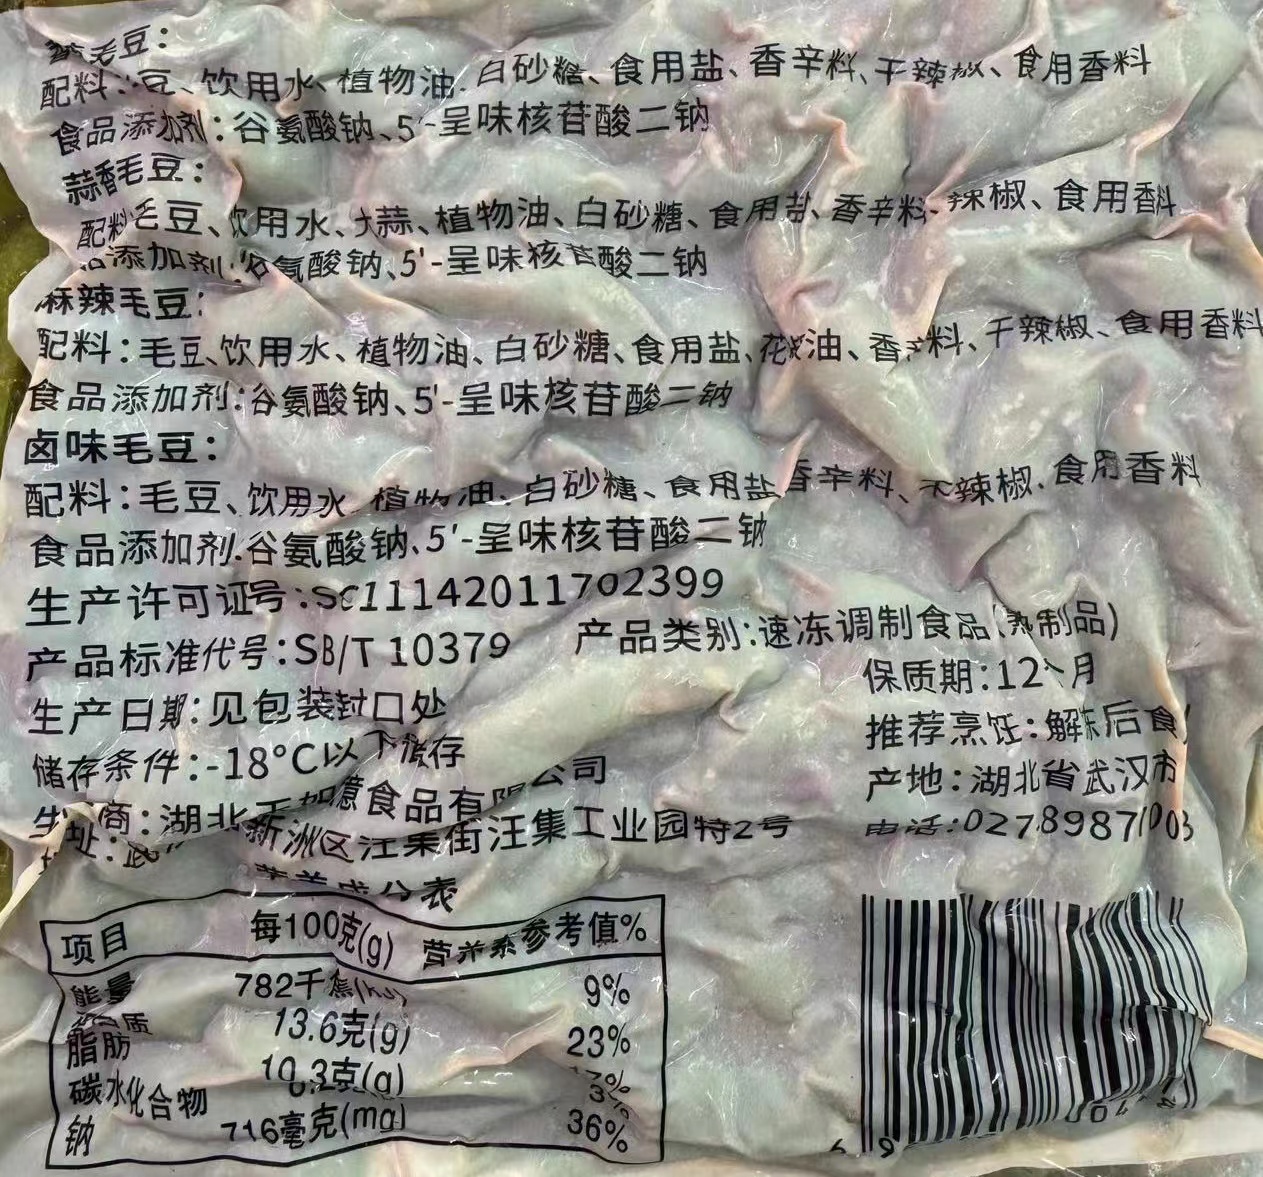 毛豆：
配料：豆、饮用水、植物油、白砂糖、食用盐、香辛料、干辣椒、食用香料
食品添加剂：谷氨酸钠、5'-呈味核苷酸二钠
蒜香毛豆：
配料毛豆、饮用水、大蒜、植物油、白砂糖、食用盐、香辛料、辣椒、食用香料
品添加剂：谷氨酸钠、5'-呈味核苷酸二钠
麻辣毛豆：
配料：毛豆、饮用水、植物油、白砂糖、食用盐、花椒油、香辛料、干辣椒、食用香料
食品添加剂：谷氨酸钠、5'-呈味核苷酸二钠
卤味毛豆：
配料：毛豆、饮用水、植物油、白砂糖、食用盐、香辛料、干辣椒、食用香料
食品添加剂：谷氨酸钠、5'-呈味核苷酸二钠
生产许可证号：SC11142011702399
产品标准代号：SB/T 10379 产品类别：速冻调制食品（熟制品）
保质期：12个月
生产日期：见包装封口处
推荐烹饪：解冻后食
储存条件：-18°C以下储存
产地：湖北省武汉市
生产商：湖北 如 食品有限公司
地址：武 新洲区汪集街汪集工业园特2号
电话：027 89871003
营养成分表
项目 每100克(g) 营养素参考值%
能量 782千焦(kJ) 9%
蛋白质 13.6克(g) 23%
脂肪 10.3克(g) 17%
碳水化合物 3%
钠 716毫克(mg) 36%
6 9